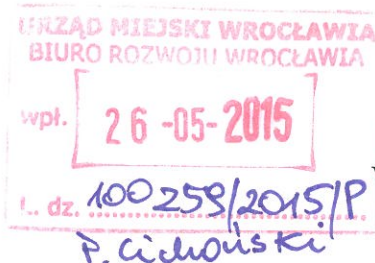 URZĄD MIEJSKI WROCŁAWIA
BIURO ROZWOJU WROCŁAWIA
wpł. 26 -05- 2015
L. dz. 100259/2015/P
P. Cichoński